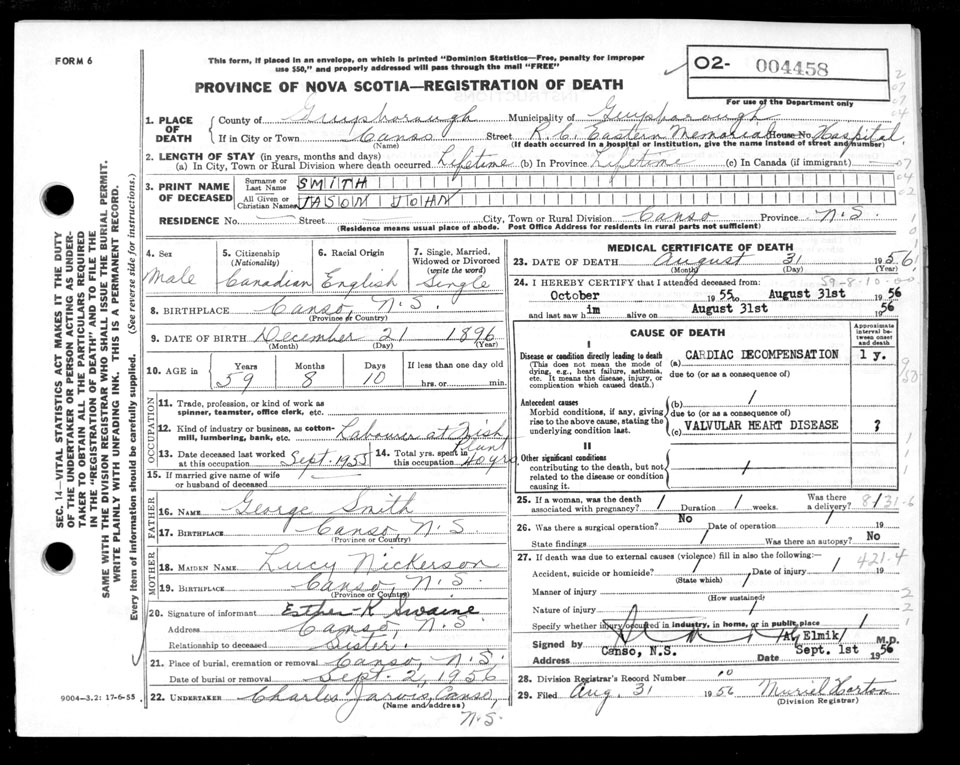 FORM 6
This form, if placed in an envelope, on which is printed "Dominion Statistics—Free, penalty for improper
use $50," and properly addressed will pass through the mail "FREE"
PROVINCE OF NOVA SCOTIA—REGISTRATION OF DEATH
O2- 004458
For use of the Department only
1. PLACE OF DEATH
County of Guysborough Municipality of Guysborough
If in City or Town Canso Street R.C. Eastern Memorial House No Hospital
(Name) (If death occurred in a hospital or institution, give the name instead of street and number)
2. LENGTH OF STAY (in years, months and days)
(a) In City, Town or Rural Division where death occurred Lifetime (b) In Province Lifetime (c) In Canada (if immigrant)
3. PRINT NAME OF DECEASED
Surname or Last Name SMITH
All Given or Christian Names JASON JOHN
RESIDENCE No Street City, Town or Rural Division Canso Province N.S.
(Residence means usual place of abode. Post Office Address for residents in rural parts not sufficient)
4. Sex Male
5. Citizenship (Nationality) Canadian
6. Racial Origin English
7. Single, Married, Widowed or Divorced (write the word) Single
8. BIRTHPLACE Canso, N.S.
(Province or Country)
9. DATE OF BIRTH December 21 1896
(Month) (Day) (Year)
10. AGE in Years 59 Months 8 Days 10 If less than one day old hrs. or min.
OCCUPATION
11. Trade, profession, or kind of work as
spinner, teamster, office clerk, etc.
12. Kind of industry or business, as cotton-
mill, lumbering, bank, etc. Labourer at Fish Plant
13. Date deceased last worked
at this occupation Sept. 1955
14. Total yrs. spent in
this occupation 40 yrs
15. If married give name of wife
or husband of deceased
FATHER
16. Name George Smith
17. Birthplace Canso N.S.
(Province or Country)
MOTHER
18. Maiden Name Lucy Nickerson
19. Birthplace Canso, N.S.
(Province or Country)
20. Signature of informant Esther K Swaine
Address Canso, N.S.
Relationship to deceased Sister.
21. Place of burial, cremation or removal Canso, N.S.
Date of burial or removal Sept. 2, 1956
22. Undertaker Charles Jarvis, Canso, N.S.
(Name and address)
9004—3.2: 17-6-55
MEDICAL CERTIFICATE OF DEATH
23. DATE OF DEATH August 31 1956
(Month) (Day) (Year)
59-8-10-00
24. I HEREBY CERTIFY that I attended deceased from:
October 1955 to August 31st 1956
and last saw him alive on August 31st 1956
CAUSE OF DEATH
Approximate interval between onset and death
I
Disease or condition directly leading to death
(This does not mean the mode of
dying, e.g., heart failure, asthenia,
etc. It means the disease, injury, or
complication which caused death.)
(a) CARDIAC DECOMPENSATION 1 y.
due to (or as a consequence of)
Antecedent causes
Morbid conditions, if any, giving
rise to the above cause, stating the
underlying condition last.
(b) /
due to (or as a consequence of)
(c) VALVULAR HEART DISEASE ?
II
Other significant conditions
contributing to the death, but not
related to the disease or condition
causing it.
/
25. If a woman, was the death
associated with pregnancy? / Duration / weeks. Was there a delivery? /
8/31-6
26. Was there a surgical operation? No Date of operation / 19
State findings / Was there an autopsy? No
27. If death was due to external causes (violence) fill in also the following:
421.4
Accident, suicide or homicide? / Date of injury / 19
(State which)
Manner of injury /
(How sustained)
Nature of injury /
Specify whether injury occurred in industry, in home, or in public place /
Signed by /A. Elmik/ M.D.
Address Canso, N.S. Date Sept. 1st 1956
28. Division Registrar's Record Number
29. Filed Aug. 31 1956 Muriel Horton
(Division Registrar)
SEC. 14—VITAL STATISTICS ACT MAKES IT THE DUTY
OF THE UNDERTAKER OR PERSON ACTING AS UNDER-
TAKER TO OBTAIN ALL THE PARTICULARS REQUIRED
IN THE "REGISTRATION OF DEATH" AND TO FILE THE
SAME WITH THE DIVISION REGISTRAR WHO SHALL ISSUE THE BURIAL PERMIT.
WRITE PLAINLY WITH UNFADING INK. THIS IS A PERMANENT RECORD.
Every item of information should be carefully supplied. (See reverse side for instructions.)